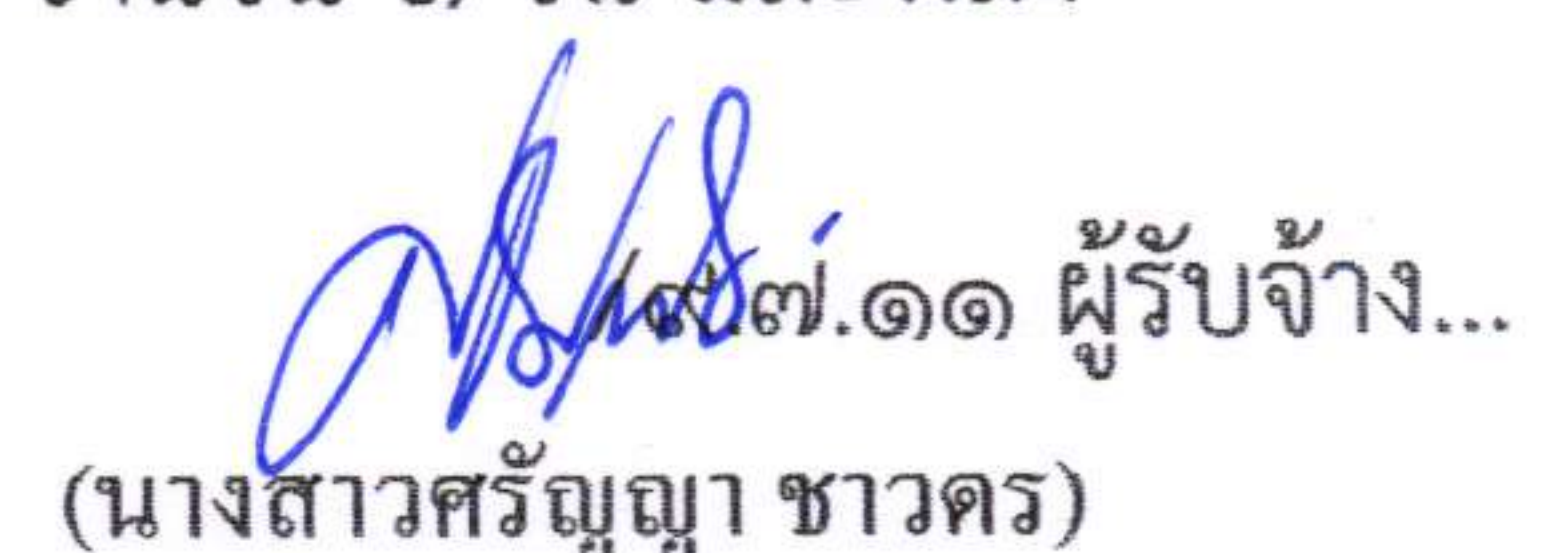 /๙.๗.๑๑ ผู้รับจ้าง...
(นางสาวศรัญญา ชาวดร)